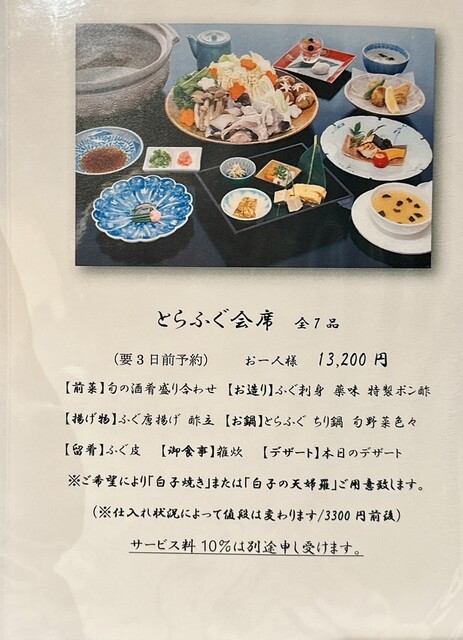 とらふぐ会席 全7品
(要3日前予約) お一人様 13,200円
【前菜】旬の酒肴盛り合わせ 【お造り】ふぐ刺身 薬味 特製ポン酢
【揚げ物】ふぐ唐揚げ 酢立 【お鍋】とらふぐ ちり鍋 旬野菜色々
【留肴】ふぐ皮 【御食事】雑炊 【デザート】本日のデザート
※ご希望により「白子焼き」または「白子の天婦羅」ご用意致します。
(※仕入れ状況によって値段は変わります/3300円前後)
サービス料10%は別途申し受けます。